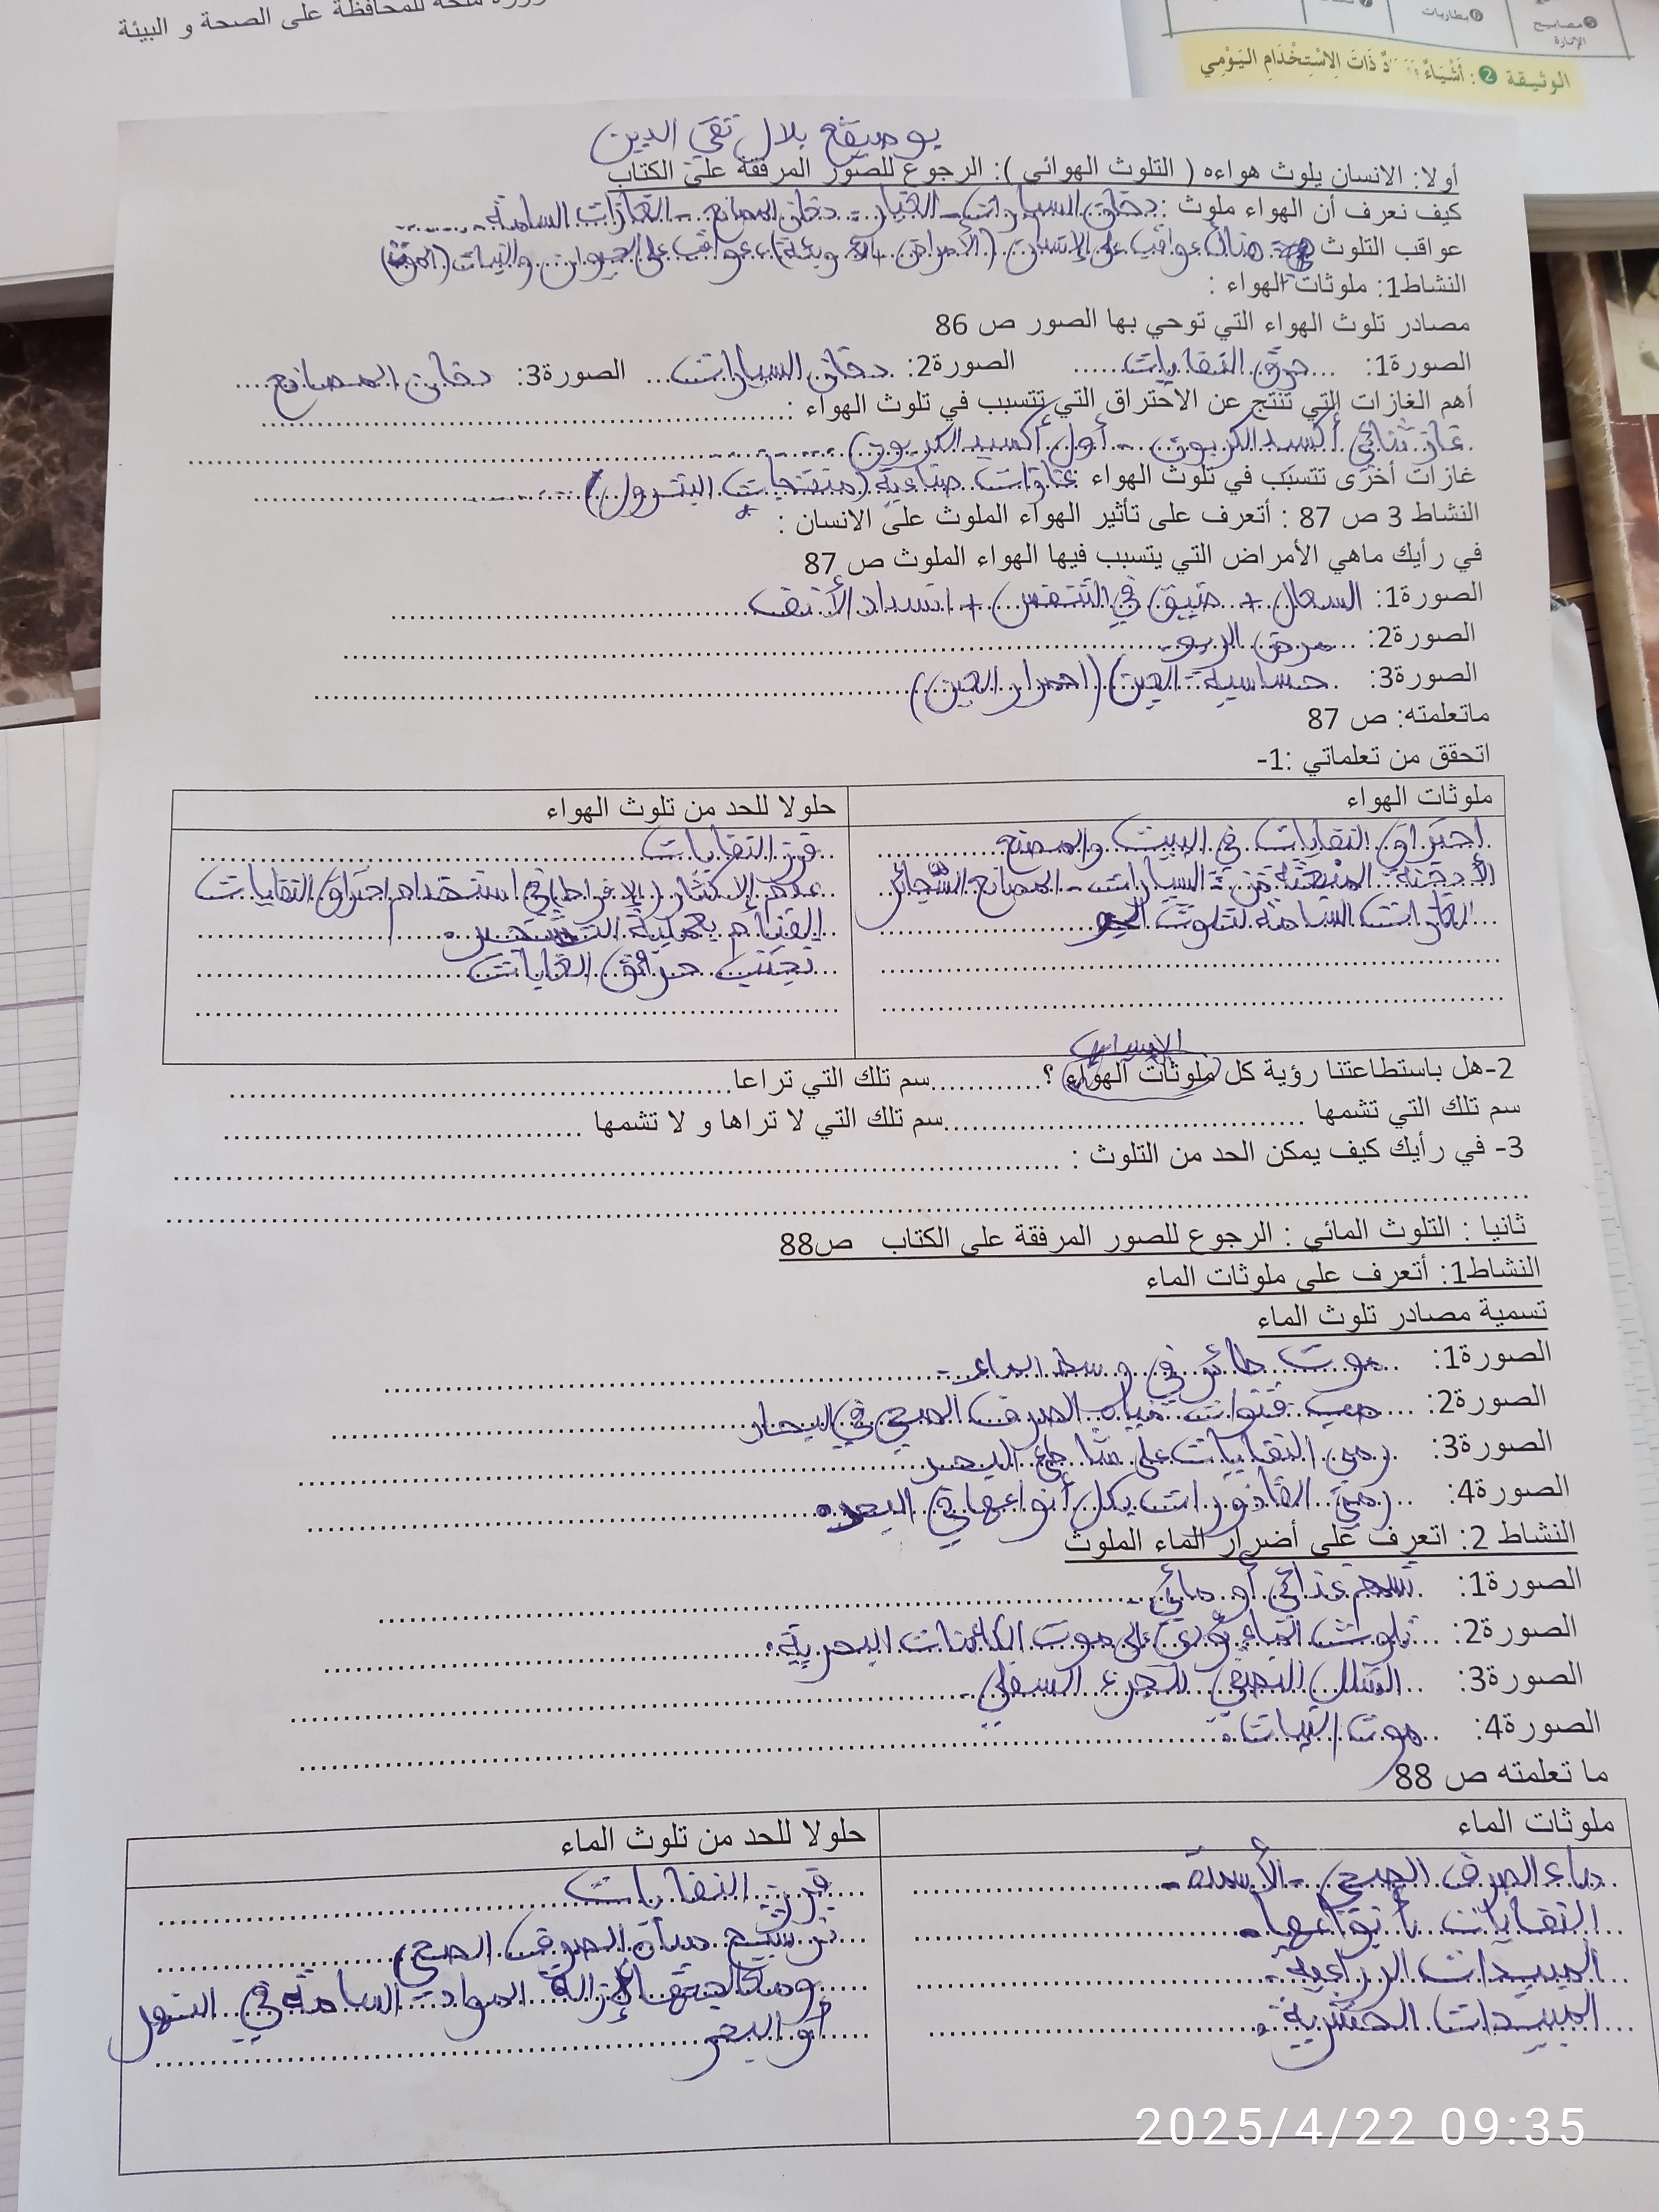 للمحافظة على الصحة و البيئة
مصابيح الإنارة
بطاريات
الوثيقة 2: أَشْيَاءٌ ذَاتَ الِاسْتِخْدَامِ الْيَوْمِي
بلال تقي الدين
أولا: الانسان يلوث هواءه ( التلوث الهوائي ): الرجوع للصور المرفقة على الكتاب
كيف نعرف أن الهواء ملوث : دخان السيارات - الغبار - دخان المصانع - الغازات السامة
عواقب التلوث هناك عواقب على الإنسان (الأمراض + الأوبئة)، عواقب على الحيوان والنبات (الموت)
النشاط1: ملوثات الهواء :
مصادر تلوث الهواء التي توحي بها الصور ص 86
الصورة1: حرق النفايات الصورة2: دخان السيارات الصورة3: دخان المصانع
أهم الغازات التي تنتج عن الاحتراق التي تتسبب في تلوث الهواء :
غاز ثنائي أكسيد الكربون - أول أكسيد الكربون
غازات أخرى تتسبب في تلوث الهواء غازات صناعية (منتجات البترول)
النشاط 3 ص 87 : أتعرف على تأثير الهواء الملوث على الانسان :
في رأيك ماهي الأمراض التي يتسبب فيها الهواء الملوث ص 87
الصورة1: السعال + ضيق في التنفس + انسداد الأنف
الصورة2: مرض الربو
الصورة3: حساسية العين (احمرار العين)
ماتعلمته: ص 87
اتحقق من تعلماتي :1-
ملوثات الهواء حلولا للحد من تلوث الهواء
احتراق النفايات في البيت والمصنع فرز النفايات
الأدخنة المنبعثة من : السيارات - المصانع السجائر عدم الإكثار (الإفراط) في استخدام احتراق النفايات
الغازات السامة لتلوث الجو القيام بعملية التشجير.
تجنب حرق الغابات
الإنسان
2-هل باستطاعتنا رؤية كل ملوثات الهواء ؟............سم تلك التي تراعا
سم تلك التي تشمها ............سم تلك التي لا تراها و لا تشمها
3- في رأيك كيف يمكن الحد من التلوث :
ثانيا : التلوث المائي : الرجوع للصور المرفقة على الكتاب ص88
النشاط1: أتعرف على ملوثات الماء
تسمية مصادر تلوث الماء
الصورة1: موت طائر في وسط الماء
الصورة2: صب قنوات مياه الصرف الصحي في البحار
الصورة3: رمي النفايات على شاطئ البحر
الصورة4: رمي القاذورات بكل أنواعها في البحر.
النشاط 2: اتعرف على أضرار الماء الملوث
الصورة1: تسمم غذائي أو مائي
الصورة2: تلوث الماء يؤدي إلى موت الكائنات البحرية.
الصورة3: الشلل النصفي للجزء السفلي
الصورة4: موت النبات.
ما تعلمته ص 88
ملوثات الماء حلولا للحد من تلوث الماء
ماء الصرف الصحي - الأسمدة - فرز النفايات
النفايات بأنواعها. ترشيح مياه الصرف الصحي
المبيدات الزراعية. ومعالجتها لإزالة المواد السامة في النهر
المبيدات الحشرية. أو البحر
2025/4/22 09:35